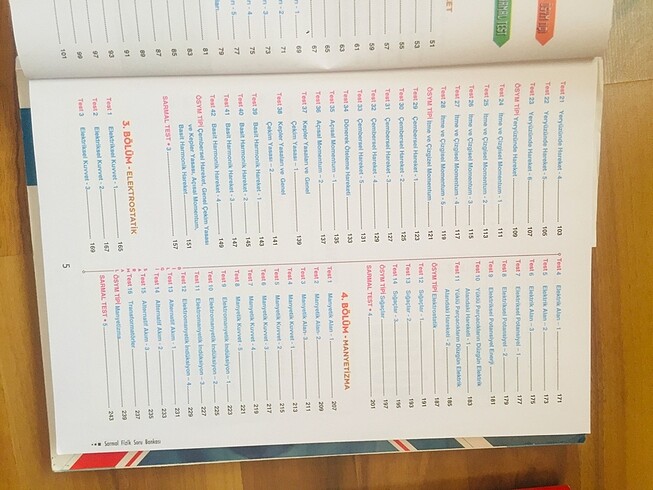 51
53
55
57
59
61
63
65
67
69
71
73
75
77
79
81
83
85
87
89
91
93
97
99
101
Test 21 Yeryüzünde Hareket - 4 103
Test 22 Yeryüzünde Hareket - 5 105
Test 23 Yeryüzünde Hareket - 6 107
ÖSYM TİPİ Yeryüzünde Hareket 109
Test 24 İtme ve Çizgisel Momentum - 1 111
Test 25 İtme ve Çizgisel Momentum - 2 113
Test 26 İtme ve Çizgisel Momentum - 3 115
Test 27 İtme ve Çizgisel Momentum - 4 117
Test 28 İtme ve Çizgisel Momentum - 5 119
ÖSYM TİPİ İtme ve Çizgisel Momentum 121
Test 29 Çembersel Hareket - 1 123
Test 30 Çembersel Hareket - 2 125
Test 31 Çembersel Hareket - 3 127
Test 32 Çembersel Hareket - 4 129
Test 33 Çembersel Hareket - 5 131
Test 34 Dönerek Öteleme Hareketi 133
Test 35 Açısal Momentum - 1 135
Test 36 Açısal Momentum - 2 137
Test 37 Kepler Yasaları ve Genel
Çekim Yasası - 1 139
Test 38 Kepler Yasaları ve Genel
Çekim Yasası - 2 141
Test 39 Basit Harmonik Hareket - 1 143
Test 40 Basit Harmonik Hareket - 2 145
Test 41 Basit Harmonik Hareket - 3 147
Test 42 Basit Harmonik Hareket - 4 149
ÖSYM TİPİ Çembersel Hareket, Genel Çekim Yasası
ve Kepler Yasası, Açısal Momentum,
Basit Harmonik Hareket 151
SARMAL TEST • 3 157
3. BÖLÜM - ELEKTROSTATİK
Test 1 Elektriksel Kuvvet - 1 165
Test 2 Elektriksel Kuvvet - 2 167
Test 3 Elektriksel Kuvvet - 3 169
Test 4 Elektrik Alan - 1 171
Test 5 Elektrik Alan - 2 173
Test 6 Elektrik Alan - 3 175
Test 7 Elektriksel Potansiyel - 1 177
Test 8 Elektriksel Potansiyel - 2 179
Test 9 Elektriksel Potansiyel Enerji 181
Test 10 Yüklü Parçacıkların Düzgün Elektrik
Alandaki Hareketi - 1 183
Test 11 Yüklü Parçacıkların Düzgün Elektrik
Alandaki Hareketi - 2 185
ÖSYM TİPİ Elektrostatik 187
Test 12 Sığaçlar - 1 191
Test 13 Sığaçlar - 2 193
Test 14 Sığaçlar - 3 195
ÖSYM TİPİ Sığaçlar 197
SARMAL TEST • 4 201
4. BÖLÜM - MANYETİZMA
Test 1 Manyetik Alan - 1 207
Test 2 Manyetik Alan - 2 209
Test 3 Manyetik Alan - 3 211
Test 4 Manyetik Kuvvet - 1 213
Test 5 Manyetik Kuvvet - 2 215
Test 6 Manyetik Kuvvet - 3 217
Test 7 Manyetik Kuvvet - 4 219
Test 8 Manyetik Kuvvet - 5 221
Test 9 Elektromanyetik İndüksiyon - 1 223
Test 10 Elektromanyetik İndüksiyon - 2 225
Test 11 Elektromanyetik İndüksiyon - 3 227
Test 12 Elektromanyetik İndüksiyon - 4 229
Test 13 Alternatif Akım - 1 231
Test 14 Alternatif Akım - 2 233
Test 15 Alternatif Akım - 3 235
Test 16 Transformatörler 237
ÖSYM TİPİ Manyetizma 239
SARMAL TEST • 5 243
5
Sarmal Fizik Soru Bankası